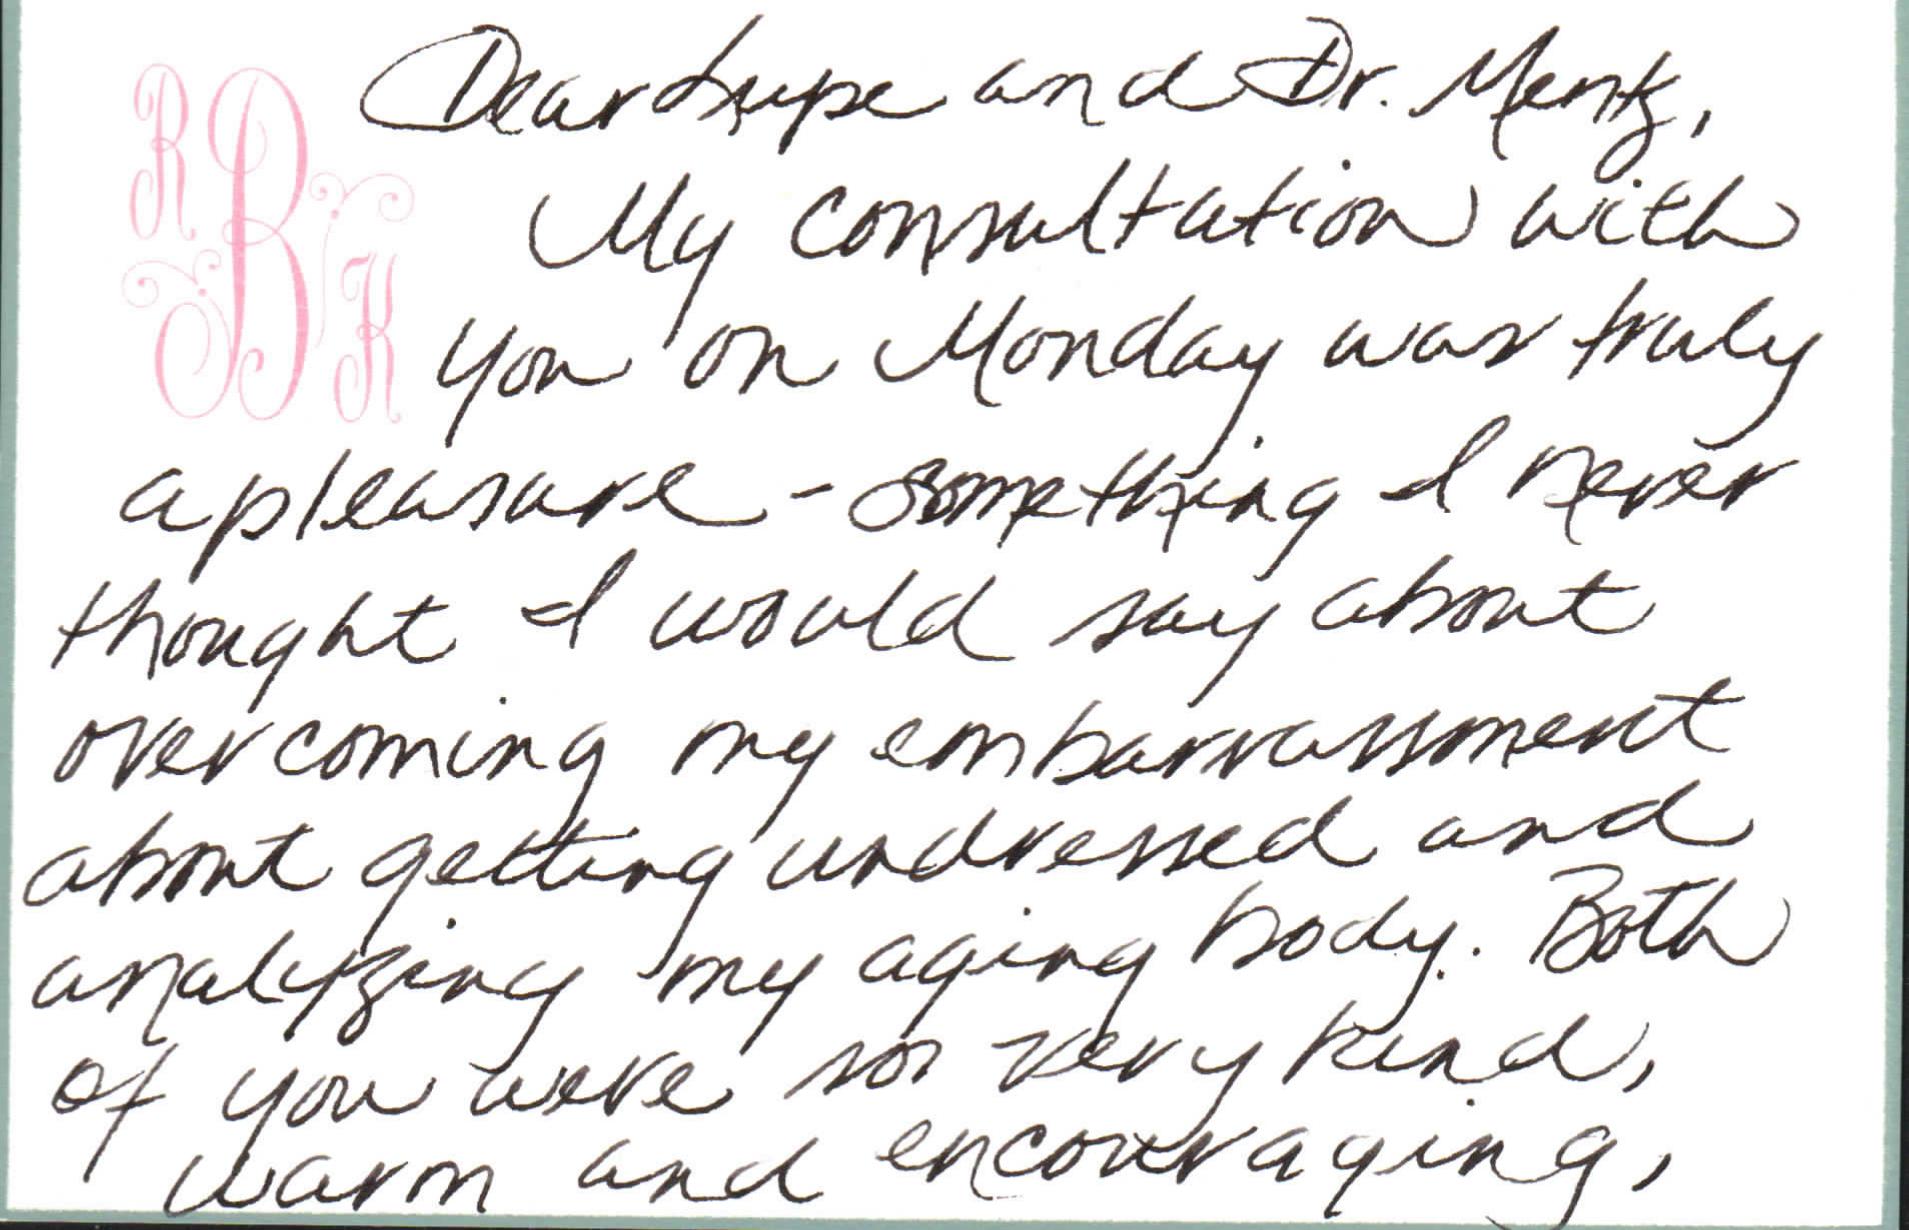 R B K
Dear Lupe and Dr. Mentz,
My consultation with
you on Monday was truly
a pleasure - something I never
thought I would say about
overcoming my embarrassment
about getting undressed and
analyzing my aging body. Both
of you were so very kind,
warm and encouraging,